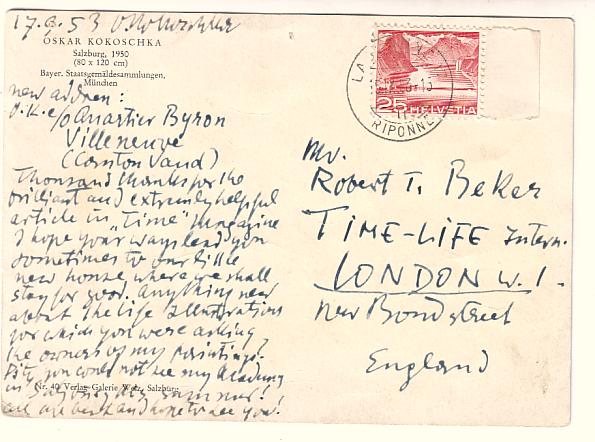 17.9.53 OKokoschka
OSKAR KOKOSCHKA
Salzburg, 1950
(80 x 120 cm)
Bayer. Staatsgemäldesammlungen,
München
new address:
O.K. c/o Quartier Byron
Villeneuve
(Canton Vaud)
Thousand thanks for the
brilliant and extremely helpful
article in "Time" Magazine
I hope your ways lead you
sometimes to our little
new house where we shall
stay for good. Anything new
about the Life Illustrations
for which you were asking
the owners of my paintings?
Pity you could not see my Academy
in Salzburg this summer!
and hope to see you!
Nr. 40 Verlag Galerie Welz, Salzburg
25 HELVETIA
RIPONNE
Mr.
Robert T. Beker
TIME-LIFE Intern.
LONDON W.1.
New Bondstreet
England